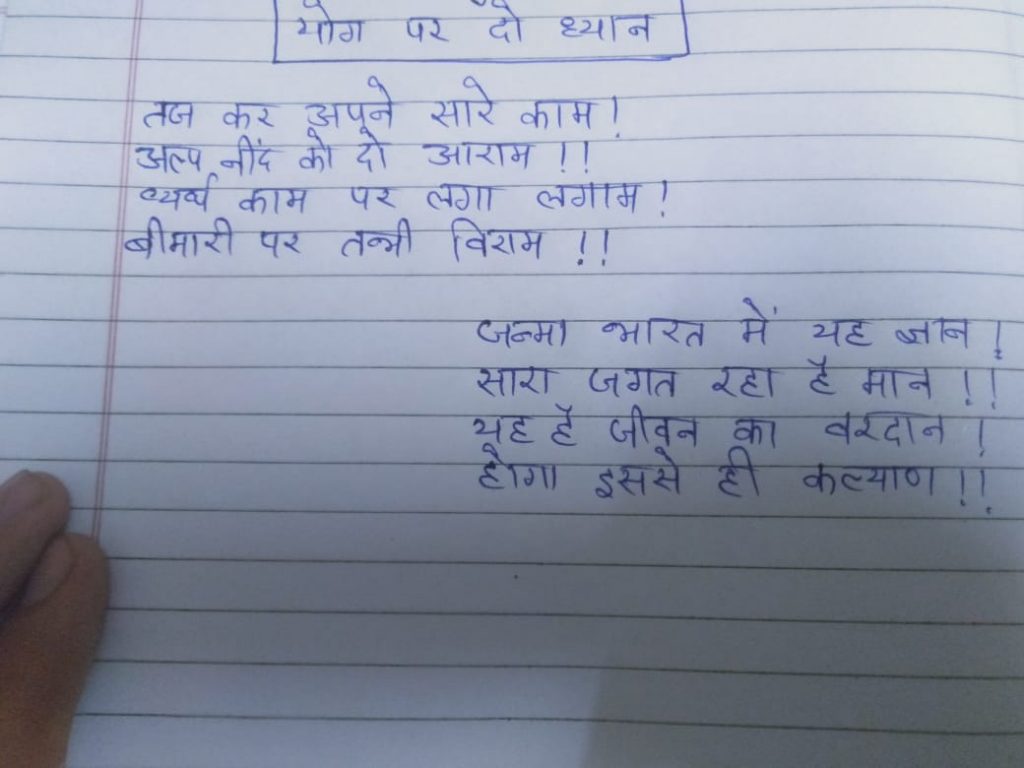 योग पर दो ध्यान
तज कर अपने सारे काम !
अल्प नींद को दो आराम !!
व्यर्थ काम पर लगा लगाम !
बीमारी पर तभी विराम !!
जन्मा भारत में यह ज्ञान !
सारा जगत रहा है मान !!
यह है जीवन का वरदान !
होगा इससे ही कल्याण !!